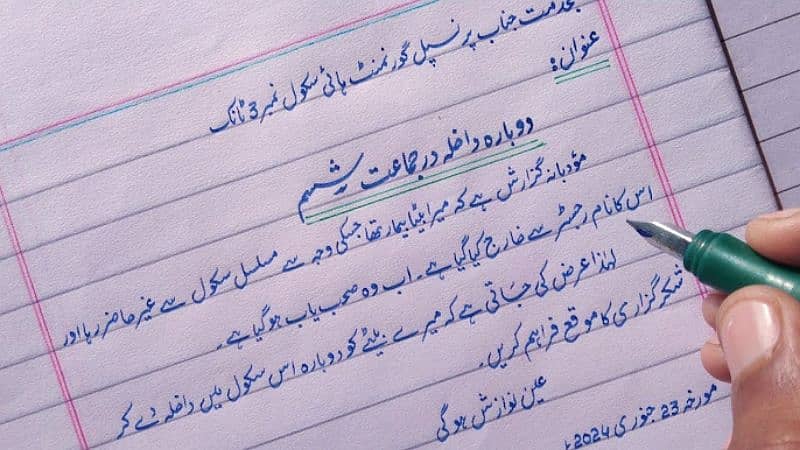 بخدمت جناب پرنسپل گورنمنٹ ہائی سکول نمبر 3 ٹانک
عنوان:
دوبارہ داخلہ در جماعت ششم
مؤدبانہ گزارش ہے کہ میرا بیٹا بیمار تھا جسکی وجہ سے مسلسل سکول سے غیر حاضر رہا اور
اس کا نام رجسٹر سے خارج کیا گیا ہے۔ اب وہ صحب یاب ہو گیا ہے۔
لہٰذا عرض کی جاتی ہے کہ میرے بیٹے کو دوبارہ اس سکول میں داخلہ دے کر
شکر گزاری کا موقع فراہم کریں۔
عین نوازش ہوگی
مورخہ 23 جنوری 2024ء